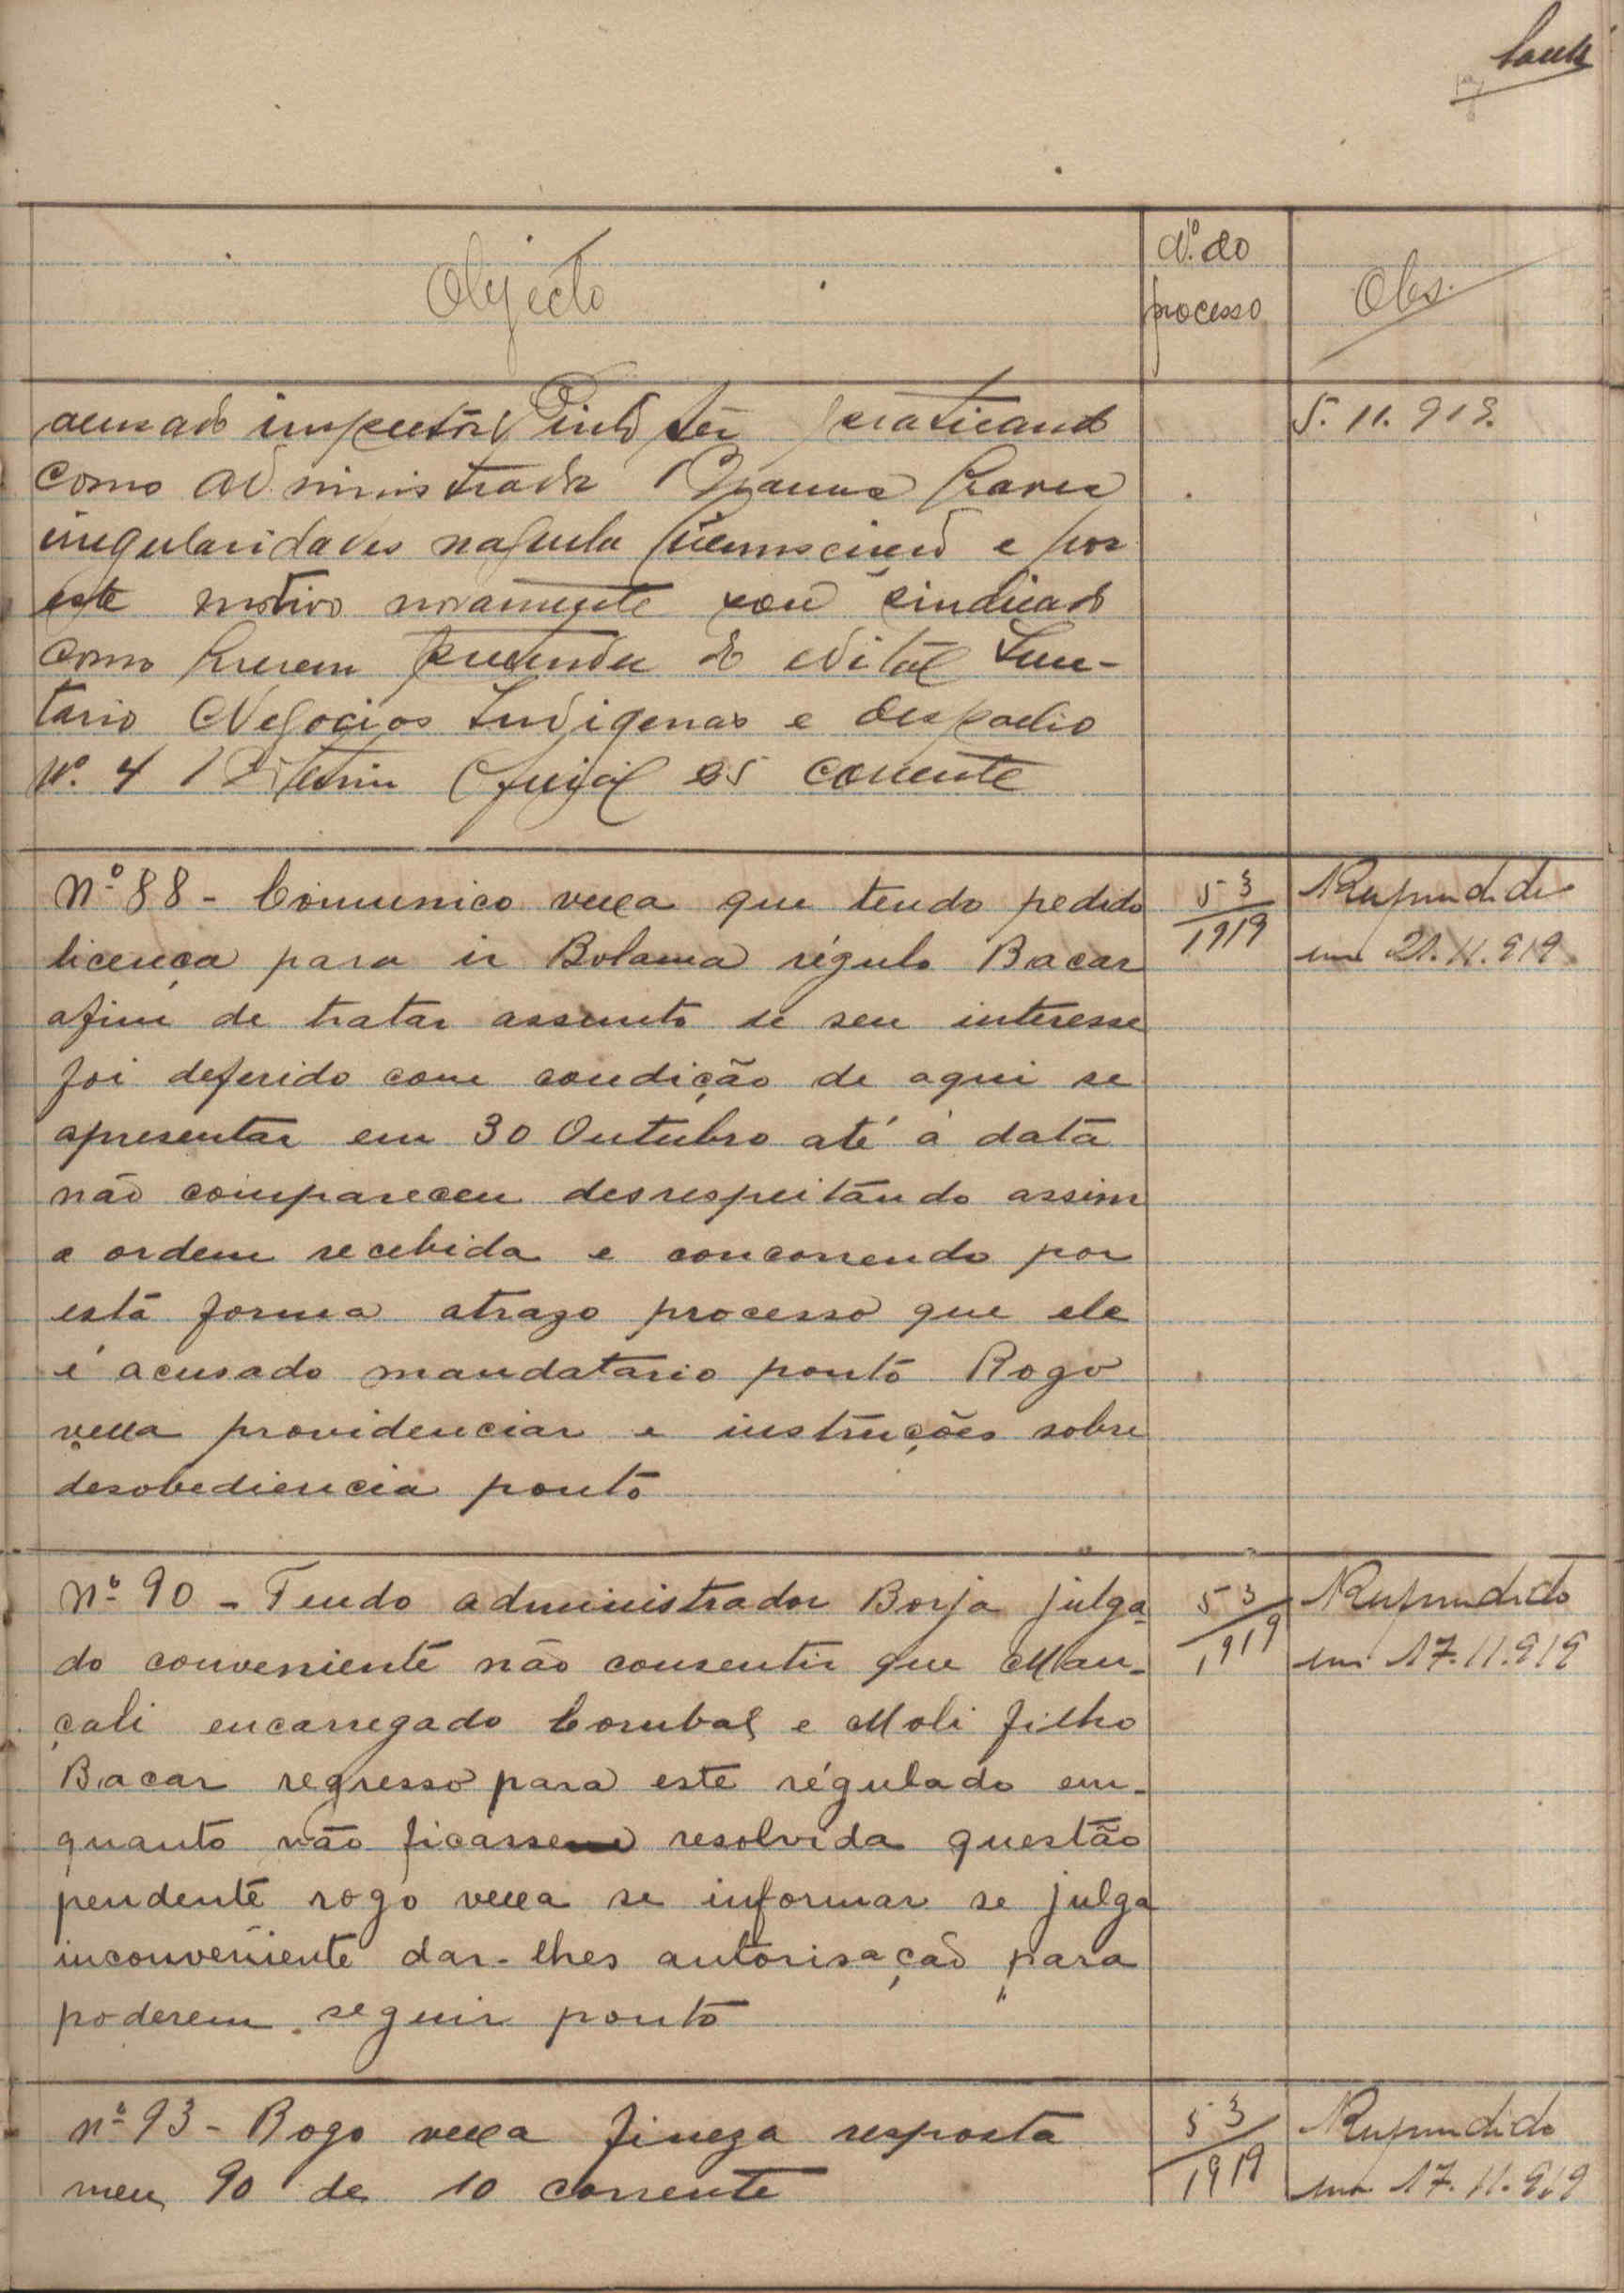 Objecto
Nº do
processo
Obs.
acusado inspector Pinto ter praticado
como administrador graves
irregularidades naquela e por
este motivo novamente sou sindicado
como
tario Negocios Indigenas e despacho
Nº 4 Boletim Oficial 25 corrente
5.11.919.
Nº 88 - Comunico vexa que tendo pedido
licença para ir Bolama régulo Bacar
afim de tratar assunto de seu interesse
foi deferido com condição de aqui se
apresentar em 30 Outubro até á data
não compareceu desrespeitando assim
a ordem recebida e concorrendo por
esta forma atrazo processo que ele
é acusado mandatario ponto Rogo
vexa providenciar e instruções sobre
desobediencia ponto
53
1919
Respondido
em 21.11.919
Nº 90 - Tendo administrador Borja julga-
do conveniente não consentir que Man-
çali encarregado Corubal e Moli filho
Bacar regresso para este régulado em-
quanto não ficasse resolvida questão
pendente rogo vexa se informar se julga
inconveniente dar-lhes autorisação para
poderem seguir ponto
53
1919
Respondido
em 17.11.919
nº 93 - Rogo vexa fineza resposta
meu 90 de 10 corrente
53
1919
Respondido
em 17.11.919